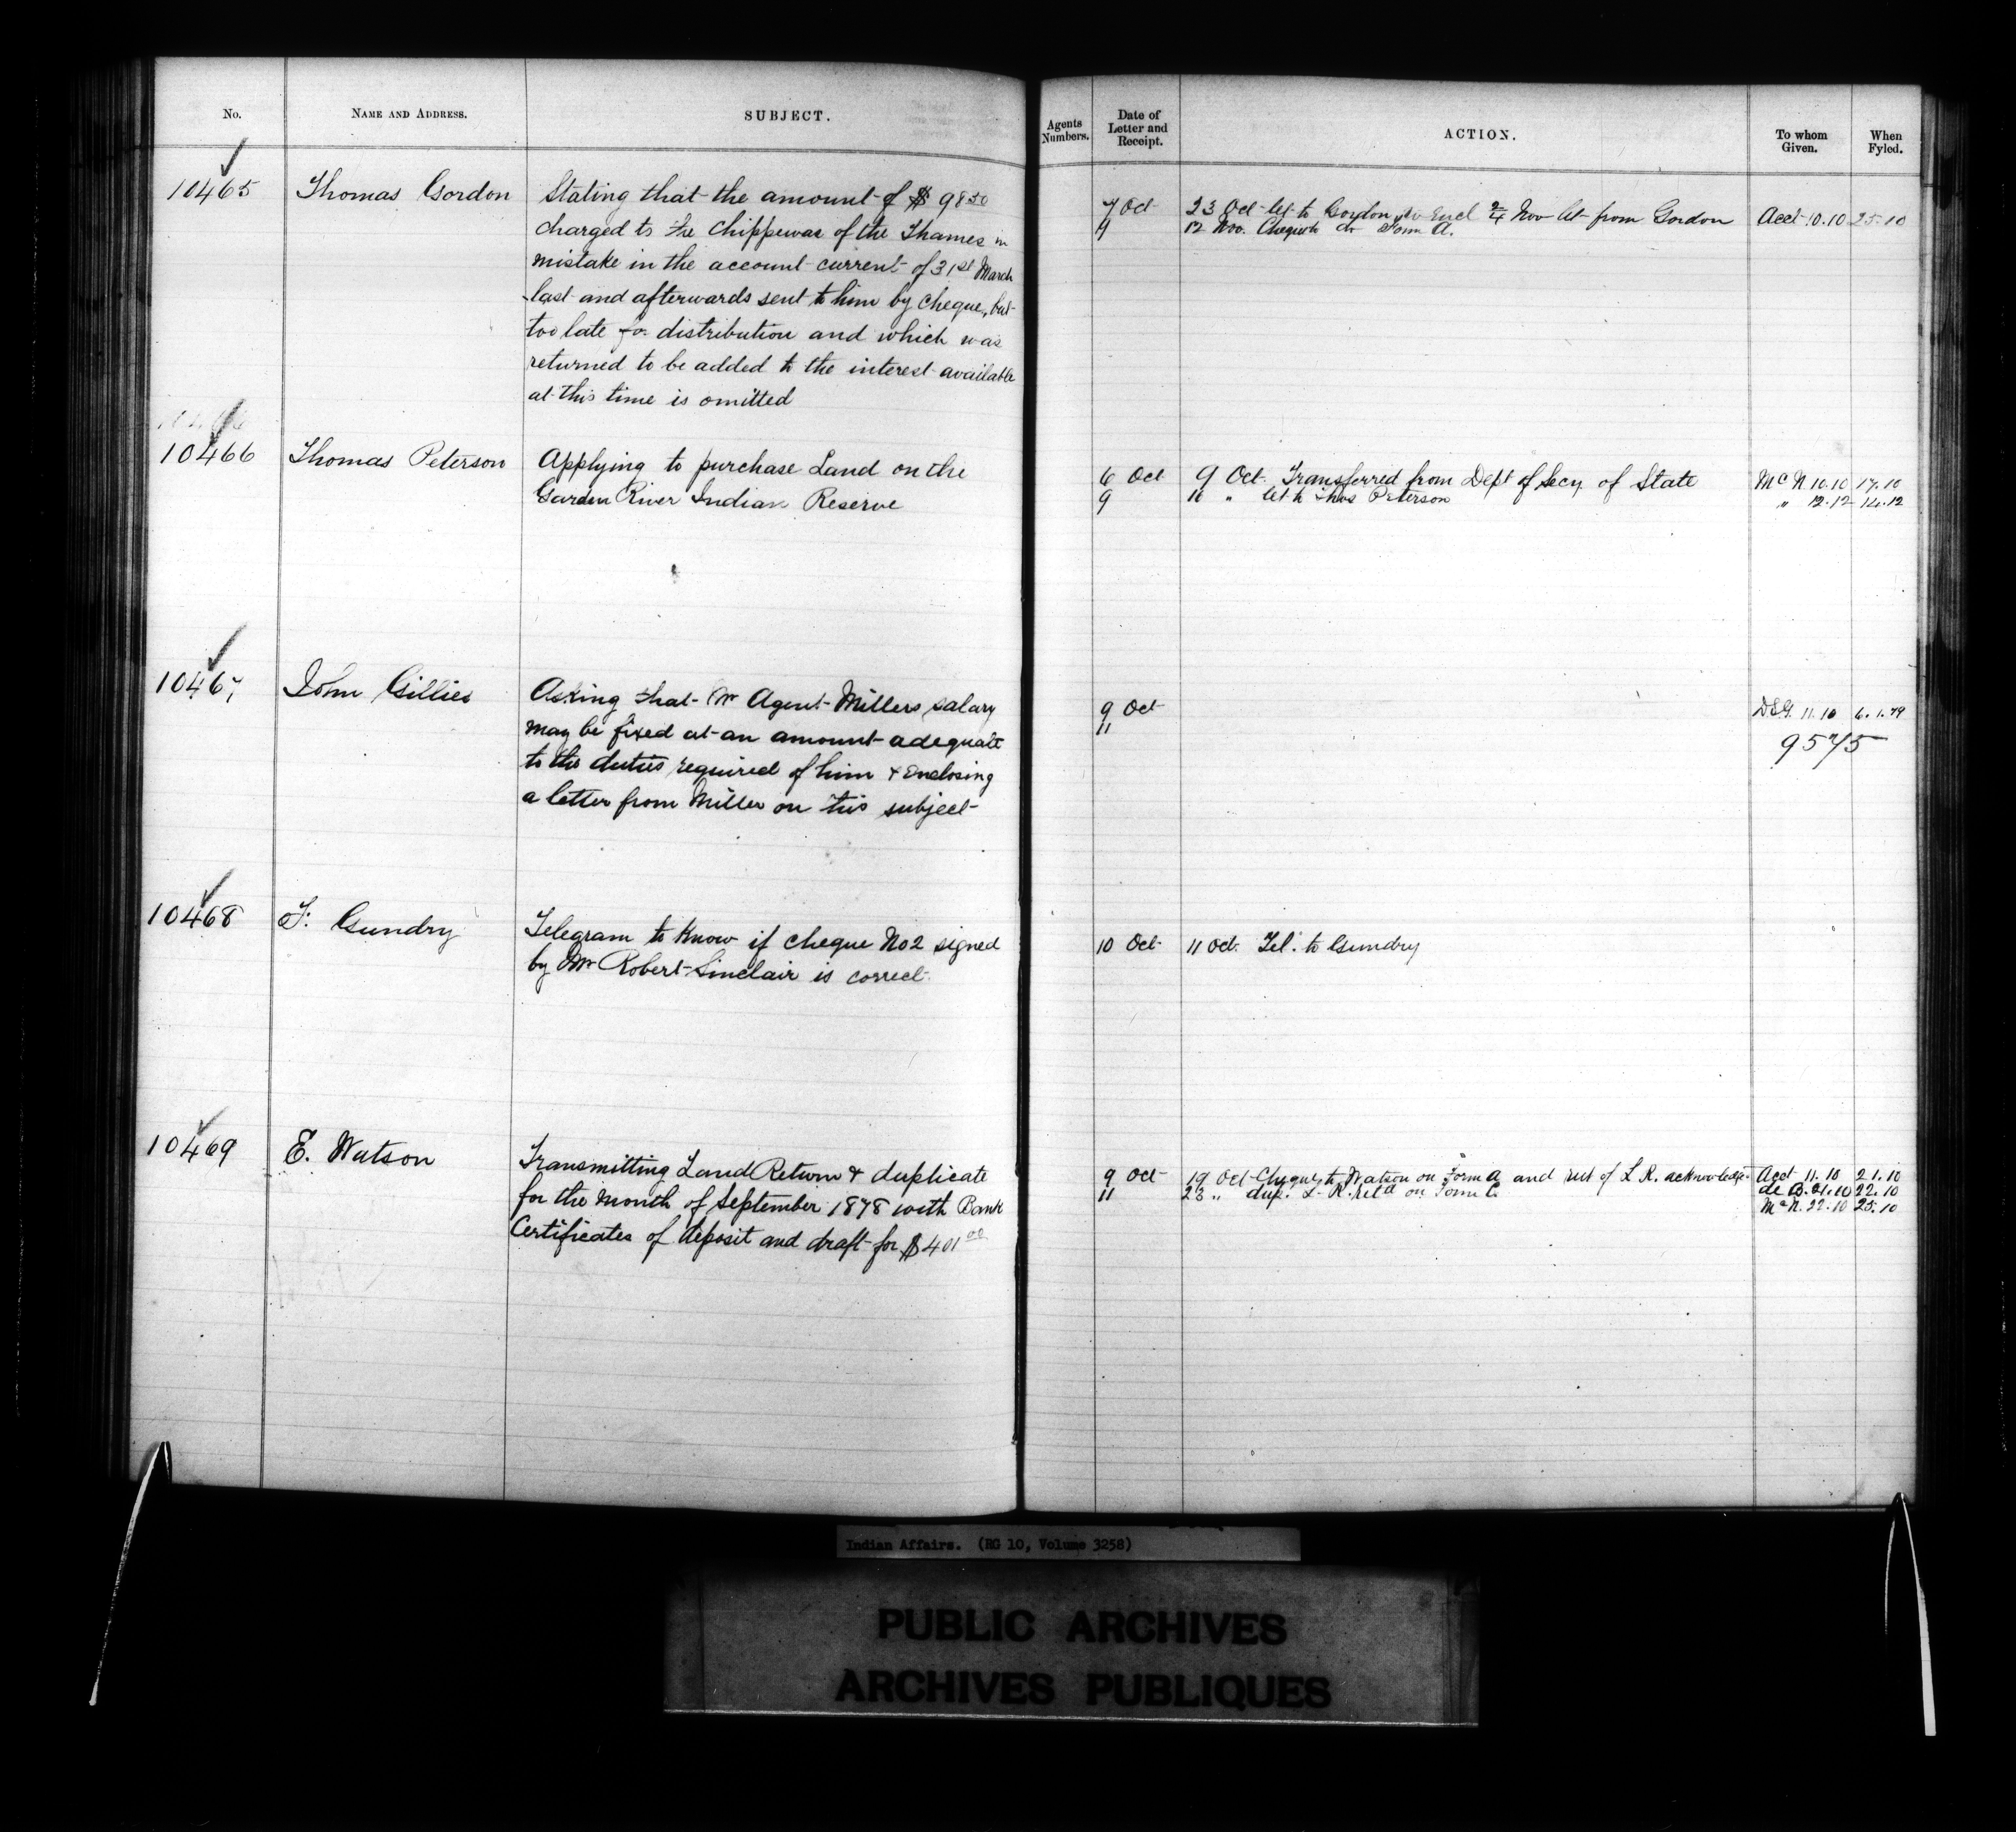 No.
NAME AND ADDRESS.
SUBJECT.
Agents Numbers.
Date of Letter and Receipt.
ACTION.
To whom Given.
When Fyled.
10465
Thomas Gordon
Stating that the amount of $ 98 50
charged to the Chippewas of the Thames in
mistake in the account current of 31st March
last and afterwards sent to him by cheque, but
too late for distribution and which was
returned to be added to the interest available
at this time is omitted
7 Oct
9
23 Oct let to Gordon Encl 2/4 Nov let from Gordon
12 Nov. Cheque Form A.
Acct 10.10 25.10
10466
Thomas Peterson
Applying to purchase Land on the
Garden River Indian Reserve
6 Oct
9
9 Oct. Transferred from Dept of Secy of State
16 " let to Thos Peterson
McN 10.10 17.10
" 12.12 14.12
10467
John Gillies
Asking that Mr Agent Millers salary
may be fixed at an amount adequate
to the duties required of him & Enclosing
a letter from Miller on this subject
9 Oct
11
DSG. 11.10 6.1.79
9575
10468
F. Gundry
Telegram to know if cheque No 2 signed
by Mr Robert Sinclair is correct
10 Oct
11 Oct. Tel. to Gundry
10469
E. Watson
Transmitting Land Return & duplicate
for the month of September 1878 with Bank
Certificates of deposit and draft for $401 00
9 Oct
11
19 Oct Cheque to Watson on Form A and rect of L R. acknowledge
23 " dup. L. R. retd on Form C.
Acct 11.10 21.10
de B. 21.10 22.10
McN. 22.10 25.10
Indian Affairs. (RG 10, Volume 3258)
PUBLIC ARCHIVES
ARCHIVES PUBLIQUES